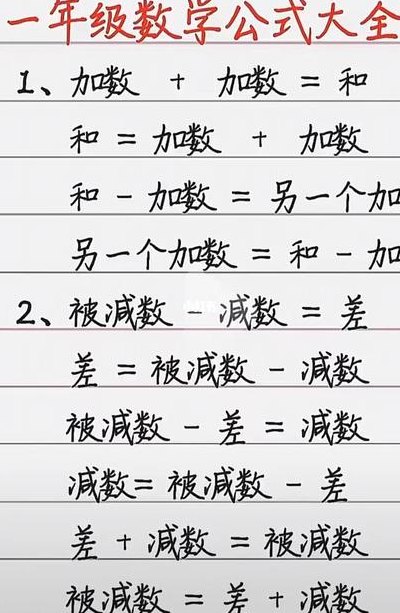 一年级数学公式大全
1、加数 + 加数 = 和
和 = 加数 + 加数
和 - 加数 = 另一个加
另一个加数 = 和 - 加
2、被减数 - 减数 = 差
差 = 被减数 - 减数
被减数 - 差 = 减数
减数= 被减数 - 差
差 + 减数 = 被减数
被减数 = 差 + 减数